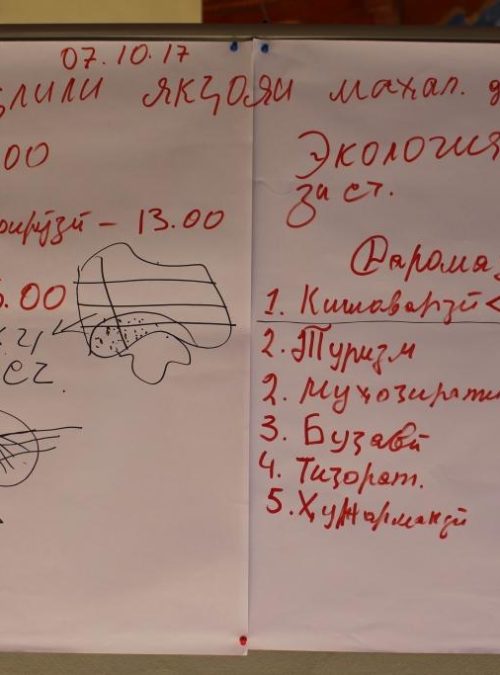 07.10.17
ллили якҷояи маҳал. д
00
шрӯзӣ – 13.00
5.00
СЕЧ.
Экология
за ст.
Дарома
1. Кишоварзӣ
2. Туризм
2. Муҳоҷирати
3. Бузавӣ
4. Тиҷорат.
5. Ҳунармандӣ